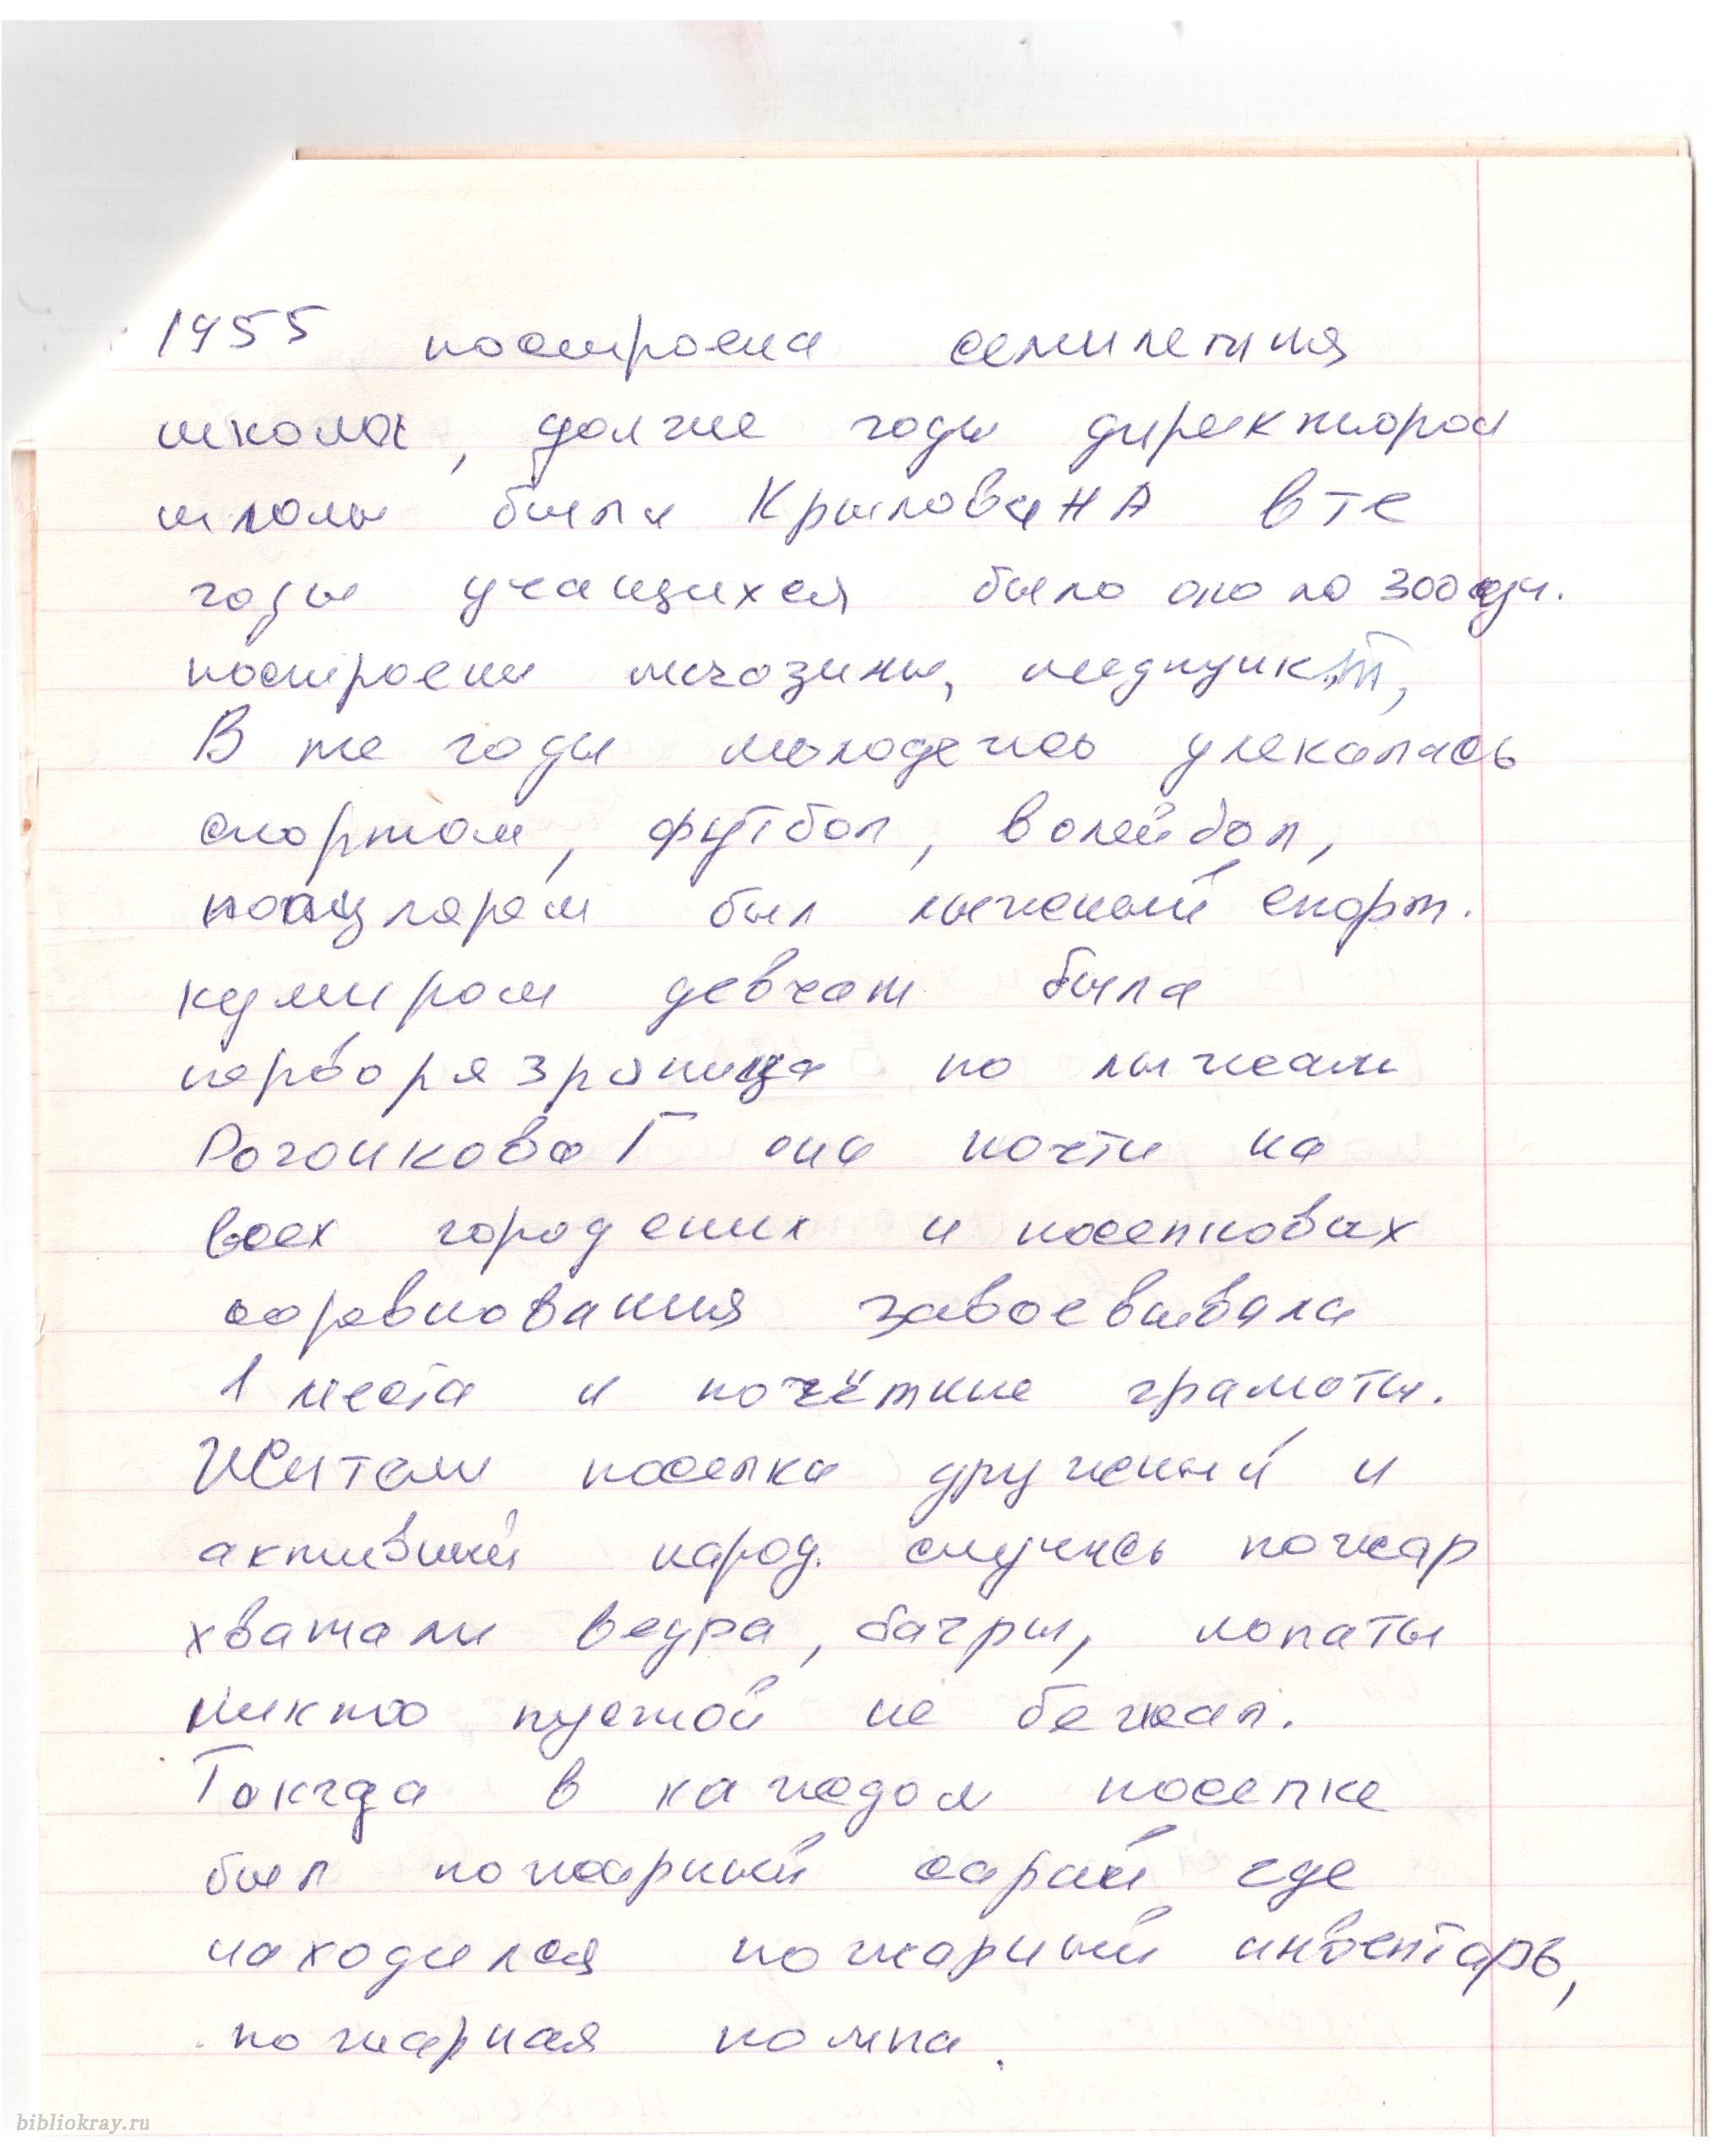 1955 построена семилетняя
школа, долгие годы директором
школы была Крылова Н А в те
годы учащихся было около 300 уч.
построены магазины, медпункт,
В те годы молодежь улекалась
спортом, футбол, волейбол,
популярем был лыжный спорт.
кумиром девчат была
перворязрядница по лыжам
Рогонкова Г она почти на
всех городских и поселковых
соревнования завоевывала
1 места и почётные грамоты.
Жители поселка дружный и
активный народ. случись пожар
хватали ведра, багры, лопаты
никто пустой не бежал.
Токгда в каждом поселке
был пожарный сарай где
находился пожарный инвентарь,
пожарная помпа.
bibliokray.ru